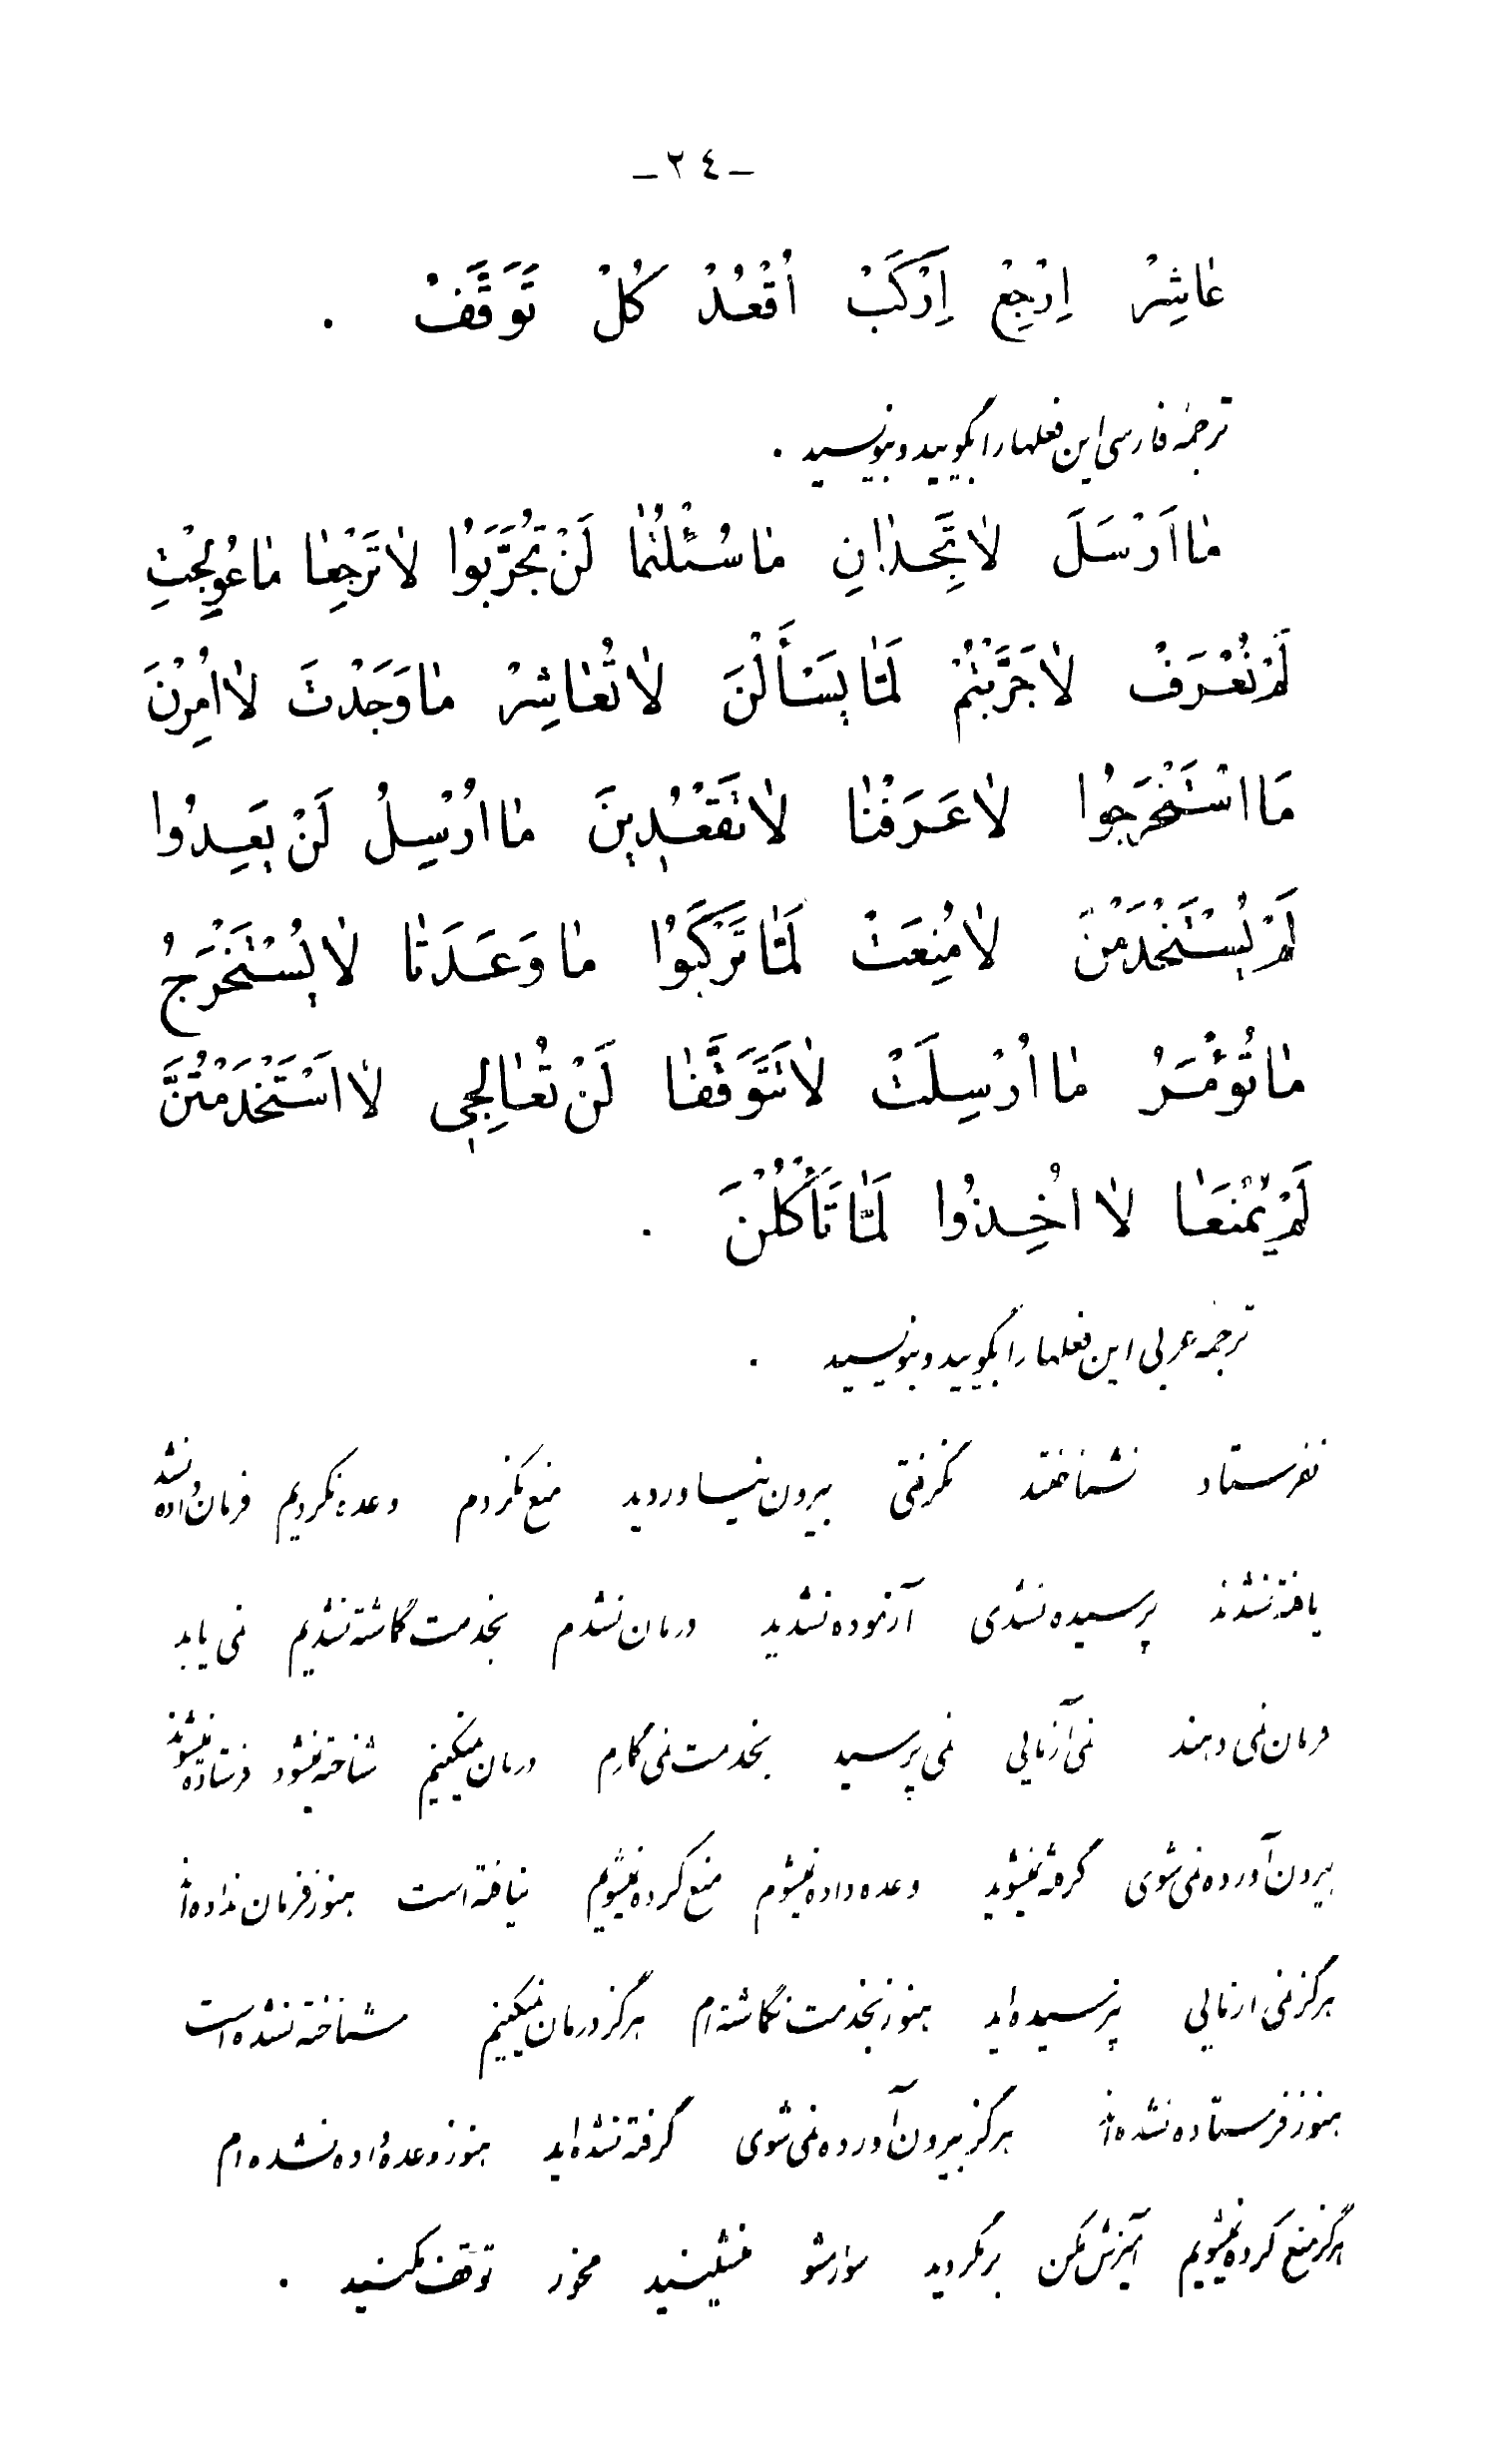 -٢٤-
عٰاشِرْ اِرْجِعْ اِرْكَبْ اُقْعُدْ كُلْ تَوَقَّفْ .
ترجمهٔ فارسی این فعلها را بگویید و بنویسید .
مٰا اَرْسَلَ لاٰ تَجِدٰانِ مٰا سُئِلْتُمٰا لَنْ تُجَرَّبُوا لاٰ تَرْجِعٰا مٰا عُولِجْتِ
لَمْ تُعْرَفْ لاٰ جَرَّبْتُمْ لَمّٰا يَسْأَلْنَ لاٰ تُعٰاشِرْ مٰا وَجَدْتَ لاٰ اُمِرْنَ
مَا اسْتَخْرَجُوا لاٰ عَرَفْنٰا لاٰ تَقْعُدِينَ مٰا اُرْسِلُ لَنْ يَعِدُوا
لَمْ يَسْتَخْدِمْنَ لاٰ مُنِعَتْ لَمّٰا تَرْكَبُوا مٰا وَعَدَتٰا لاٰ يُسْتَخْرَجُ
مٰا تُؤْمَرُ مٰا اُرْسِلَتْ لاٰ تَتَوَقَّفٰا لَنْ تُعٰالِجِي لاٰ اسْتَخْدَمْتُنَّ
لَمْ يُمْنَعٰا لاٰ اُخِذُوا لَمّٰا تَأْكُلْنَ .
ترجمه عربی این فعلها را بگویید و بنویسید .
نفرستاد نشناختند نگرفتی بیرون نیاوردید منع نکردم وعده نکردیم فرمان داده نشد
یافته نشدند پرسیده نشدی آزموده نشدید درمان نشدم بخدمت گماشته نشدیم نمی یابد
فرمان نمی دهند نمی آزمایی نمی پرسید بخدمت نمی گمارم درمان نمیکنیم شناخته نمیشود فرستاده نمیشوند
بیرون آورده نمی شوی گرفته نمیشوید وعده داده نمیشوم منع کرده نمیشویم نیافته است هنوز فرمان نداده‌اند
هرگز نمی آزمایی نپرسیده‌اید هنوز بخدمت نگماشته‌ام هرگز درمان نمیکنیم شناخته نشده است
هنوز فرستاده نشده‌اند هرگز بیرون آورده نمی شوی گرفته نشده‌اید هنوز وعده داده نشده ام
هرگز منع کرده نمیشویم آمیزش مکن برمگردید سوار مشو منشینید مخور توقف مکنید .